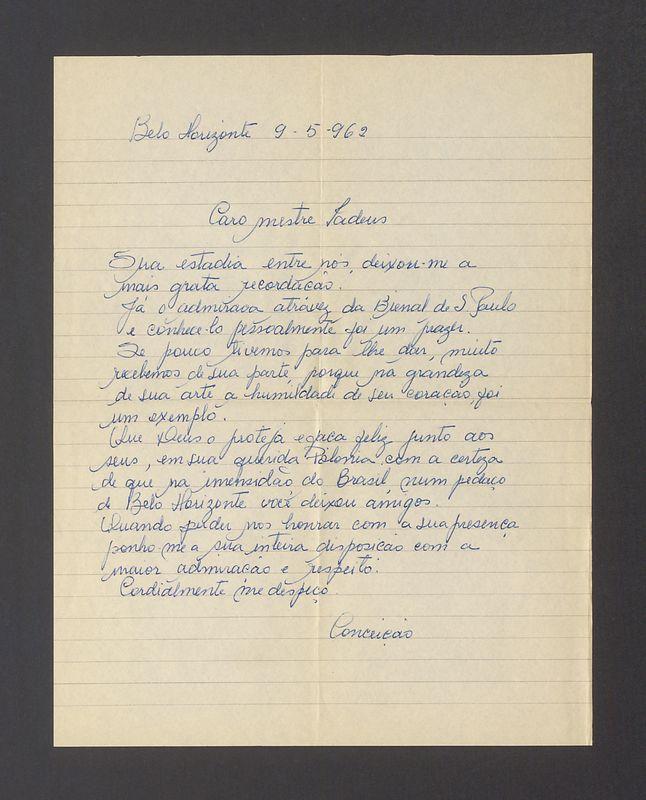 Belo Horizonte 9-5-962
Caro mestre Tadeus
Sua estadia entre nós, deixou-me a
mais grata recordação.
Já o admirava atravez da Bienal de S Paulo
e conhece-lo pessoalmente foi um prazer.
Se pouco tivemos para lhe dar, muito
recebemos de sua parte, porque na grandeza
de sua arte a humildade de seu coração, foi
um exemplo.
Que Deus o proteja e faça feliz junto aos
seus, em sua querida Polonia com a certeza
de que na imensidão do Brasil, num pedaço
de Belo Horizonte você deixou amigos.
Quando puder nos honrar com a sua presença
ponho-me a sua inteira disposição com a
maior admiração e respeito.
Cordialmente me despeço.
Conceição